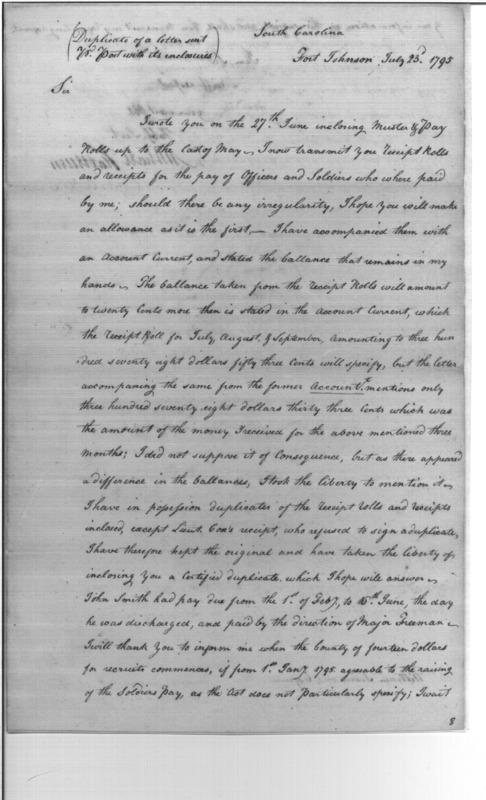 (Duplicate of a letter sent
Pr. Post with its enclosures)
South Carolina
Fort Johnson July 23d. 1795
Sir
I wrote you on the 27th June inclosing Muster & Pay
Rolls up to the last of May. I now transmit you Receipt Rolls
and receipts for the pay of Officers and Soldiers who where paid
by me; should there be any irregularity, I hope you will make
an allowance as it is the first,— I have accompanied them with
an Account Current, and stated the ballance that remains in my
hands. The ballance taken from the Receipt Rolls will amount
to twenty Cents more then is stated in the Account Current, which
the Receipt Roll for July, August, & September, amounting to three hun
dred seventy eight dollars fifty three Cents will specify, but the letter
accompaning the same from the former Accountt. mentions only
three hundred seventy eight dollars thirty three Cents which was
the amount of the money I received for the above mentioned three
Months; I did not suppose it of Consequence, but as there appeared
a difference in the ballances, I took the liberty to mention it.
I have in possession duplicates of the receipt rolls and receipts
inclosed, except Lieut. Cox's receipt, who refused to sign a duplicate,
I have therefore kept the original and have taken the liberty of
inclosing you a Certified duplicate, which I hope will answer.
John Smith had pay due from the 1st. of Feby. to 16th June, the day
he was discharged, and paid by the direction of Major Freeman.
I will thank you to inform me when the bounty of fourteen dollars
for recruits commences, if from 1st Jany. 1795 agreeable to the raising
of the Soldiers Pay, as the Act does not particularly specify; I wait
8